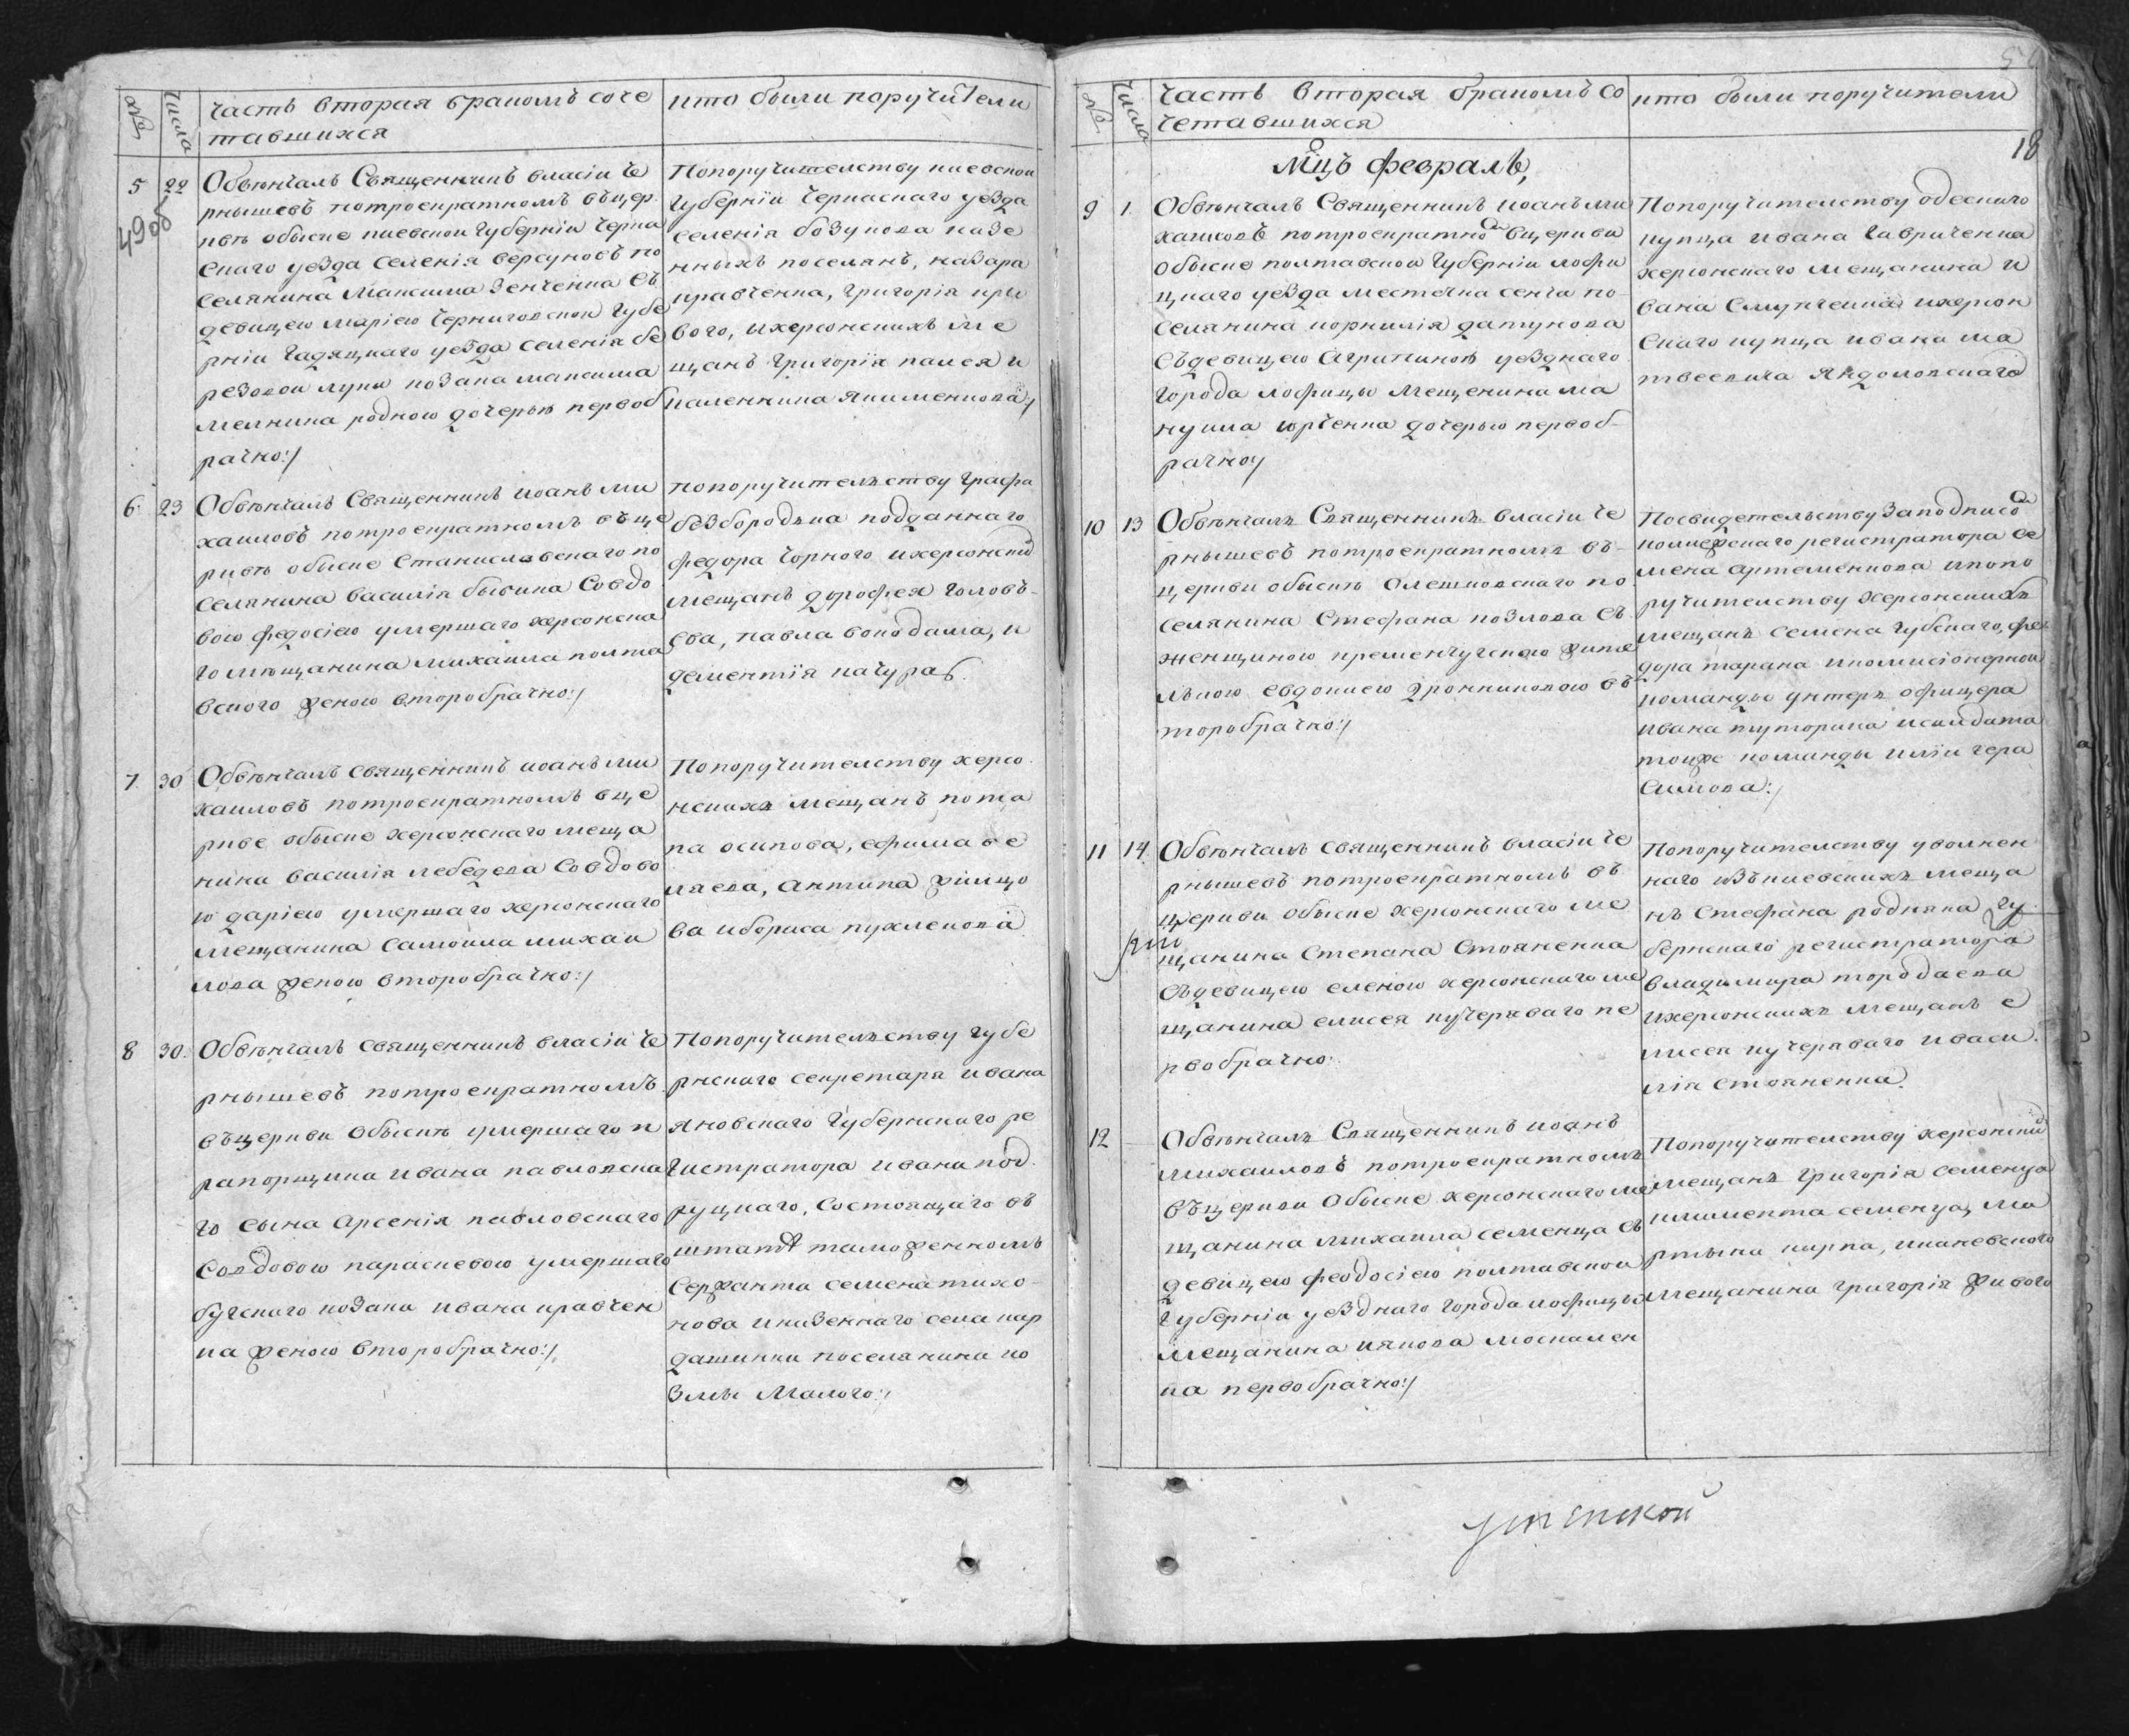 №
Числа
часть вторая бракомъ соче
тавшихся
кто были поручители
5
22
490об
Обвѣнчалъ Священникъ власій Че
рнышевъ потроекратномъ въцер
квѣ обыске киевской губерніи черка
скаго уезда селенія версуновъ по
селянина Максима Зенченка съ
девицею маріею черниговской губе
рніи гадяцкаго уезда селенія бе
резовои луки козака максима
мелника родною дочерью первоб
рачно:/
Попоручителству киевской
губерніи черкаскаго уезда
селенія бозукова казе
нныхъ поселянъ, назара
кравченка, григорія кри
вого, ихерсонскихъ ме
щанъ григорія палея и
каленника якименкова/
6
23
Обвѣнчалъ Священникъ иоанъ ми
хаиловъ потроекратномъ въце
рквѣ обыске Станиславскаго по
селянина василія бысика Совдо
вою федосіею умершаго херсонска
го мѣщанина михаила полта
вского женою второбрачно:/
попоручителству графа
безбородька подданнаго
федора чорного ихерсонских
мещанъ дорофея головъ
ева, павла воподала, и
дементія качура
7
30
Обвѣнчалъ священникъ иоанъ ми
хаиловъ потроекратномъ вце
ркве обыске херсонскаго меща
нина василія лебедева Совдово
ю даріею умершаго херсонскаго
мещанина самоила михаи
лова женою второбрачно:/
Попоручителству херсо
нскихъ мещанъ пота
па осипова, ефима бе
ляева, антипа жилцо
ва иборыса пухленова
8
30
Обвѣнчалъ священникъ власій че
рнышевъ потроекратномъ
въцеркви обыскѣ умершаго п
рапорщика ивана павловска
го сына арсенія павловскаго
Совдовою параскевою умершаго
бугскаго козака ивана кравчен
ка женою второбрачно:/
Попоручителству губе
рнскаго секретаря ивана
яновскаго губернскаго ре
гистратора ивана под
руцкаго, состоящаго въ
штатѣ таможенномъ
сержанта семена тихо
нова иказеннаго села кар
дашинки поселянина ко
змы малого:/
№
числа
часть вторая бракомъ со
четавшихся
кто были поручители
18
Мцъ февраль,
9
1
Обвѣнчалъ Священникъ иоанъ ми
хаиловъ потроекратном вцеркви
обыске полтавскои губерніи лофи
цкаго уезда местечка сенча по
селянина корнилія дапукова
съдевицею агрипиною уезднаго
города лофицы мещенина ма
нуила юрченка дочерью первоб
рачно/
Попоручителству одескаго
купца ивана гавриченка
херсонскаго мещанина и
вана смунченка ихерсон
скаго купца ивана ма
твеевича яндоловскаго
10
13
Обвѣнчалъ Священникъ власій че
рнышевъ потроекратномъ въ
церкви обыскѣ олешковскаго по
селянина стефана козлова съ
женщиною кременчугскою жите
лкою евдокиею дронниковою въ
торобрачно:/
Посвидетельству заподписом
колежскаго регистратора се
мена артеменкова ипопо
ручителству херсонскихъ
мещанъ семена губскаго, фе
дора тарана икомисіонерной
команды унтеръ офицера
ивана туторина исалдата
тоиж команды иліи гера
симова:/
11
14
Обвѣнчалъ священникъ власій че
рнышевъ потроекратномъ въ
церкви обыске херсонскаго ме
щанина степана стояненка
съдевицею еленою херсонскаго ме
щанина елисея кучеряваго пе
рвобрачно
Попоручителству уволнен
наго изъкиевскихъ меща
нъ стефана родняка гу
бернскаго регистратора
владимира тородаева
ихерсонскихъ мещанъ е
лисея кучеряваго иваси
лія стояненка.
12
Обвѣнчалъ Священникъ иоанъ
михаиловъ потроекратномъ
въцеркви обыске херсонскаго ме
щанина михаила семенца съ
девицею феодосіею полтавскои
губерніи уезднаго города лофицы
мещанина иякова москален
ка первобрачно:/
Попоручителству херсонских
мещанъ григорія семенца
иклимента семенца, ма
ртына кирпа, иканевского
мещанина григорія живого
успенской